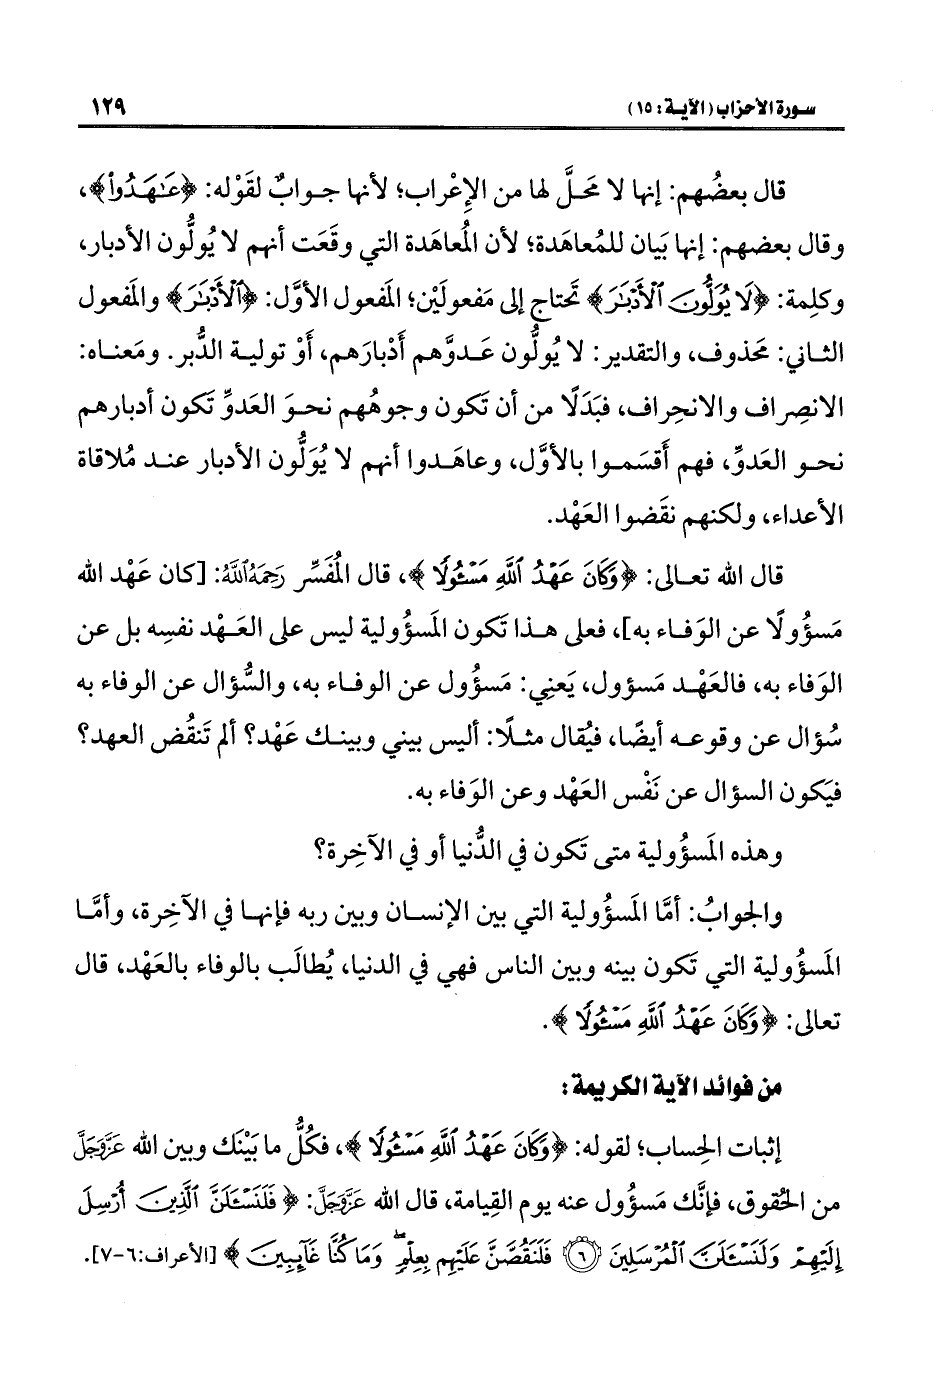 سورة الأحزاب (الآية: ١٥) ١٢٩
قال بعضُهم: إنها لا مَحَلَّ لها من الإِعْراب؛ لأنها جوابٌ لقَوْله: ﴿عَٰهَدُواْ﴾،
وقال بعضهم: إنها بَيان للمُعاهَدة؛ لأن المُعاهَدة التي وقَعَت أنهم لا يُولُّون الأدبار،
وكلِمة: ﴿لَا يُوَلُّونَ ٱلْأَدْبَٰرَ﴾ تَحتاج إلى مَفعولَيْن؛ المَفعول الأوَّل: ﴿ٱلْأَدْبَٰرَ﴾ والمَفعول
الثاني: مَحذوف، والتقدير: لا يُولُّون عَدوَّهم أَدْبارَهم، أَوْ تولية الدُّبر. ومَعناه:
الانصِراف والانحِراف، فبَدَلًا من أن تَكون وجوهُهم نحوَ العَدوِّ تَكون أدبارهم
نحو العَدوِّ، فهم أَقسَموا بالأوَّل، وعاهَدوا أنهم لا يُوَلُّون الأدبار عند مُلاقاة
الأعداء، ولكنهم نقَضوا العَهْد.
قال الله تعالى: ﴿وَكَانَ عَهْدُ ٱللَّهِ مَسْـُٔولًا﴾، قال المُفَسِّر رَحِمَهُ اللَّهُ: [كان عَهْد الله
مَسؤُولًا عن الوَفاء به]، فعلى هذا تَكون المَسؤُولية ليس على العَهْد نفسِه بل عن
الوَفاء به، فالعَهْد مَسؤول، يَعنِي: مَسؤُول عن الوفاء به، والسُّؤال عن الوفاء به
سُؤال عن وقوعه أيضًا، فيُقال مثلًا: أليس بيني وبينك عَهْد؟ ألم تَنقُض العهد؟
فيَكون السؤال عن نَفْس العَهْد وعن الوَفاء به.
وهذه المَسؤُولية متى تَكون في الدُّنيا أو في الآخِرة؟
والجوابُ: أمَّا المَسؤُولية التي بين الإنسان وبين ربه فإنها في الآخِرة، وأمَّا
المَسؤُولية التي تَكون بينه وبين الناس فهي في الدنيا، يُطالَب بالوفاء بالعَهْد، قال
تعالى: ﴿وَكَانَ عَهْدُ ٱللَّهِ مَسْـُٔولًا﴾.
من فوائد الآية الكريمة:
إثبات الحِساب؛ لقوله: ﴿وَكَانَ عَهْدُ ٱللَّهِ مَسْـُٔولًا﴾، فكُلُّ ما بَيْنَك وبين الله عَزَّوَجَلَّ
من الحُقوق، فإنَّك مَسؤُول عنه يوم القِيامة، قال الله عَزَّوَجَلَّ: ﴿فَلَنَسْـَٔلَنَّ ٱلَّذِينَ أُرْسِلَ
إِلَيْهِمْ وَلَنَسْـَٔلَنَّ ٱلْمُرْسَلِينَ ٦ فَلَنَقُصَّنَّ عَلَيْهِم بِعِلْمٍ ۖ وَمَا كُنَّا غَآئِبِينَ﴾ [الأعراف:٦-٧].